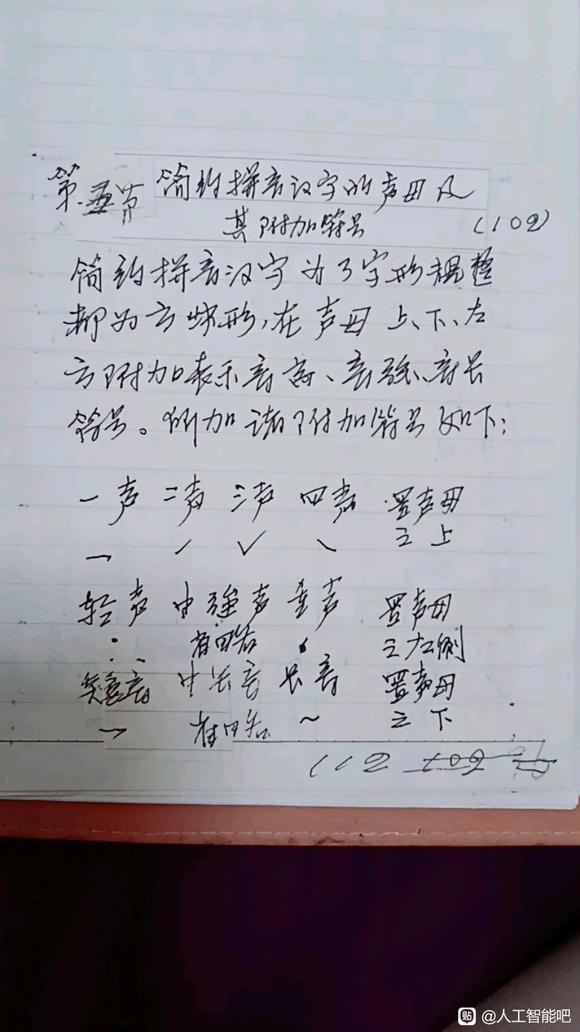 第五节 简约拼音汉字的声母及
其附加符号 (102)
简约拼音汉字为了字形规整
都为方块形,在声母上、下、左
方附加表示音高、音强、音长
符号。所加诸附加符号如下:
一声 二声 三声 四声 置声母
ˉ ˊ ˇ ˋ 之上
轻声 中强声 重声 置声母
· 省略 之左侧
短音 中长音 长音 置声母
省略 ~ 之下
112
@人工智能吧